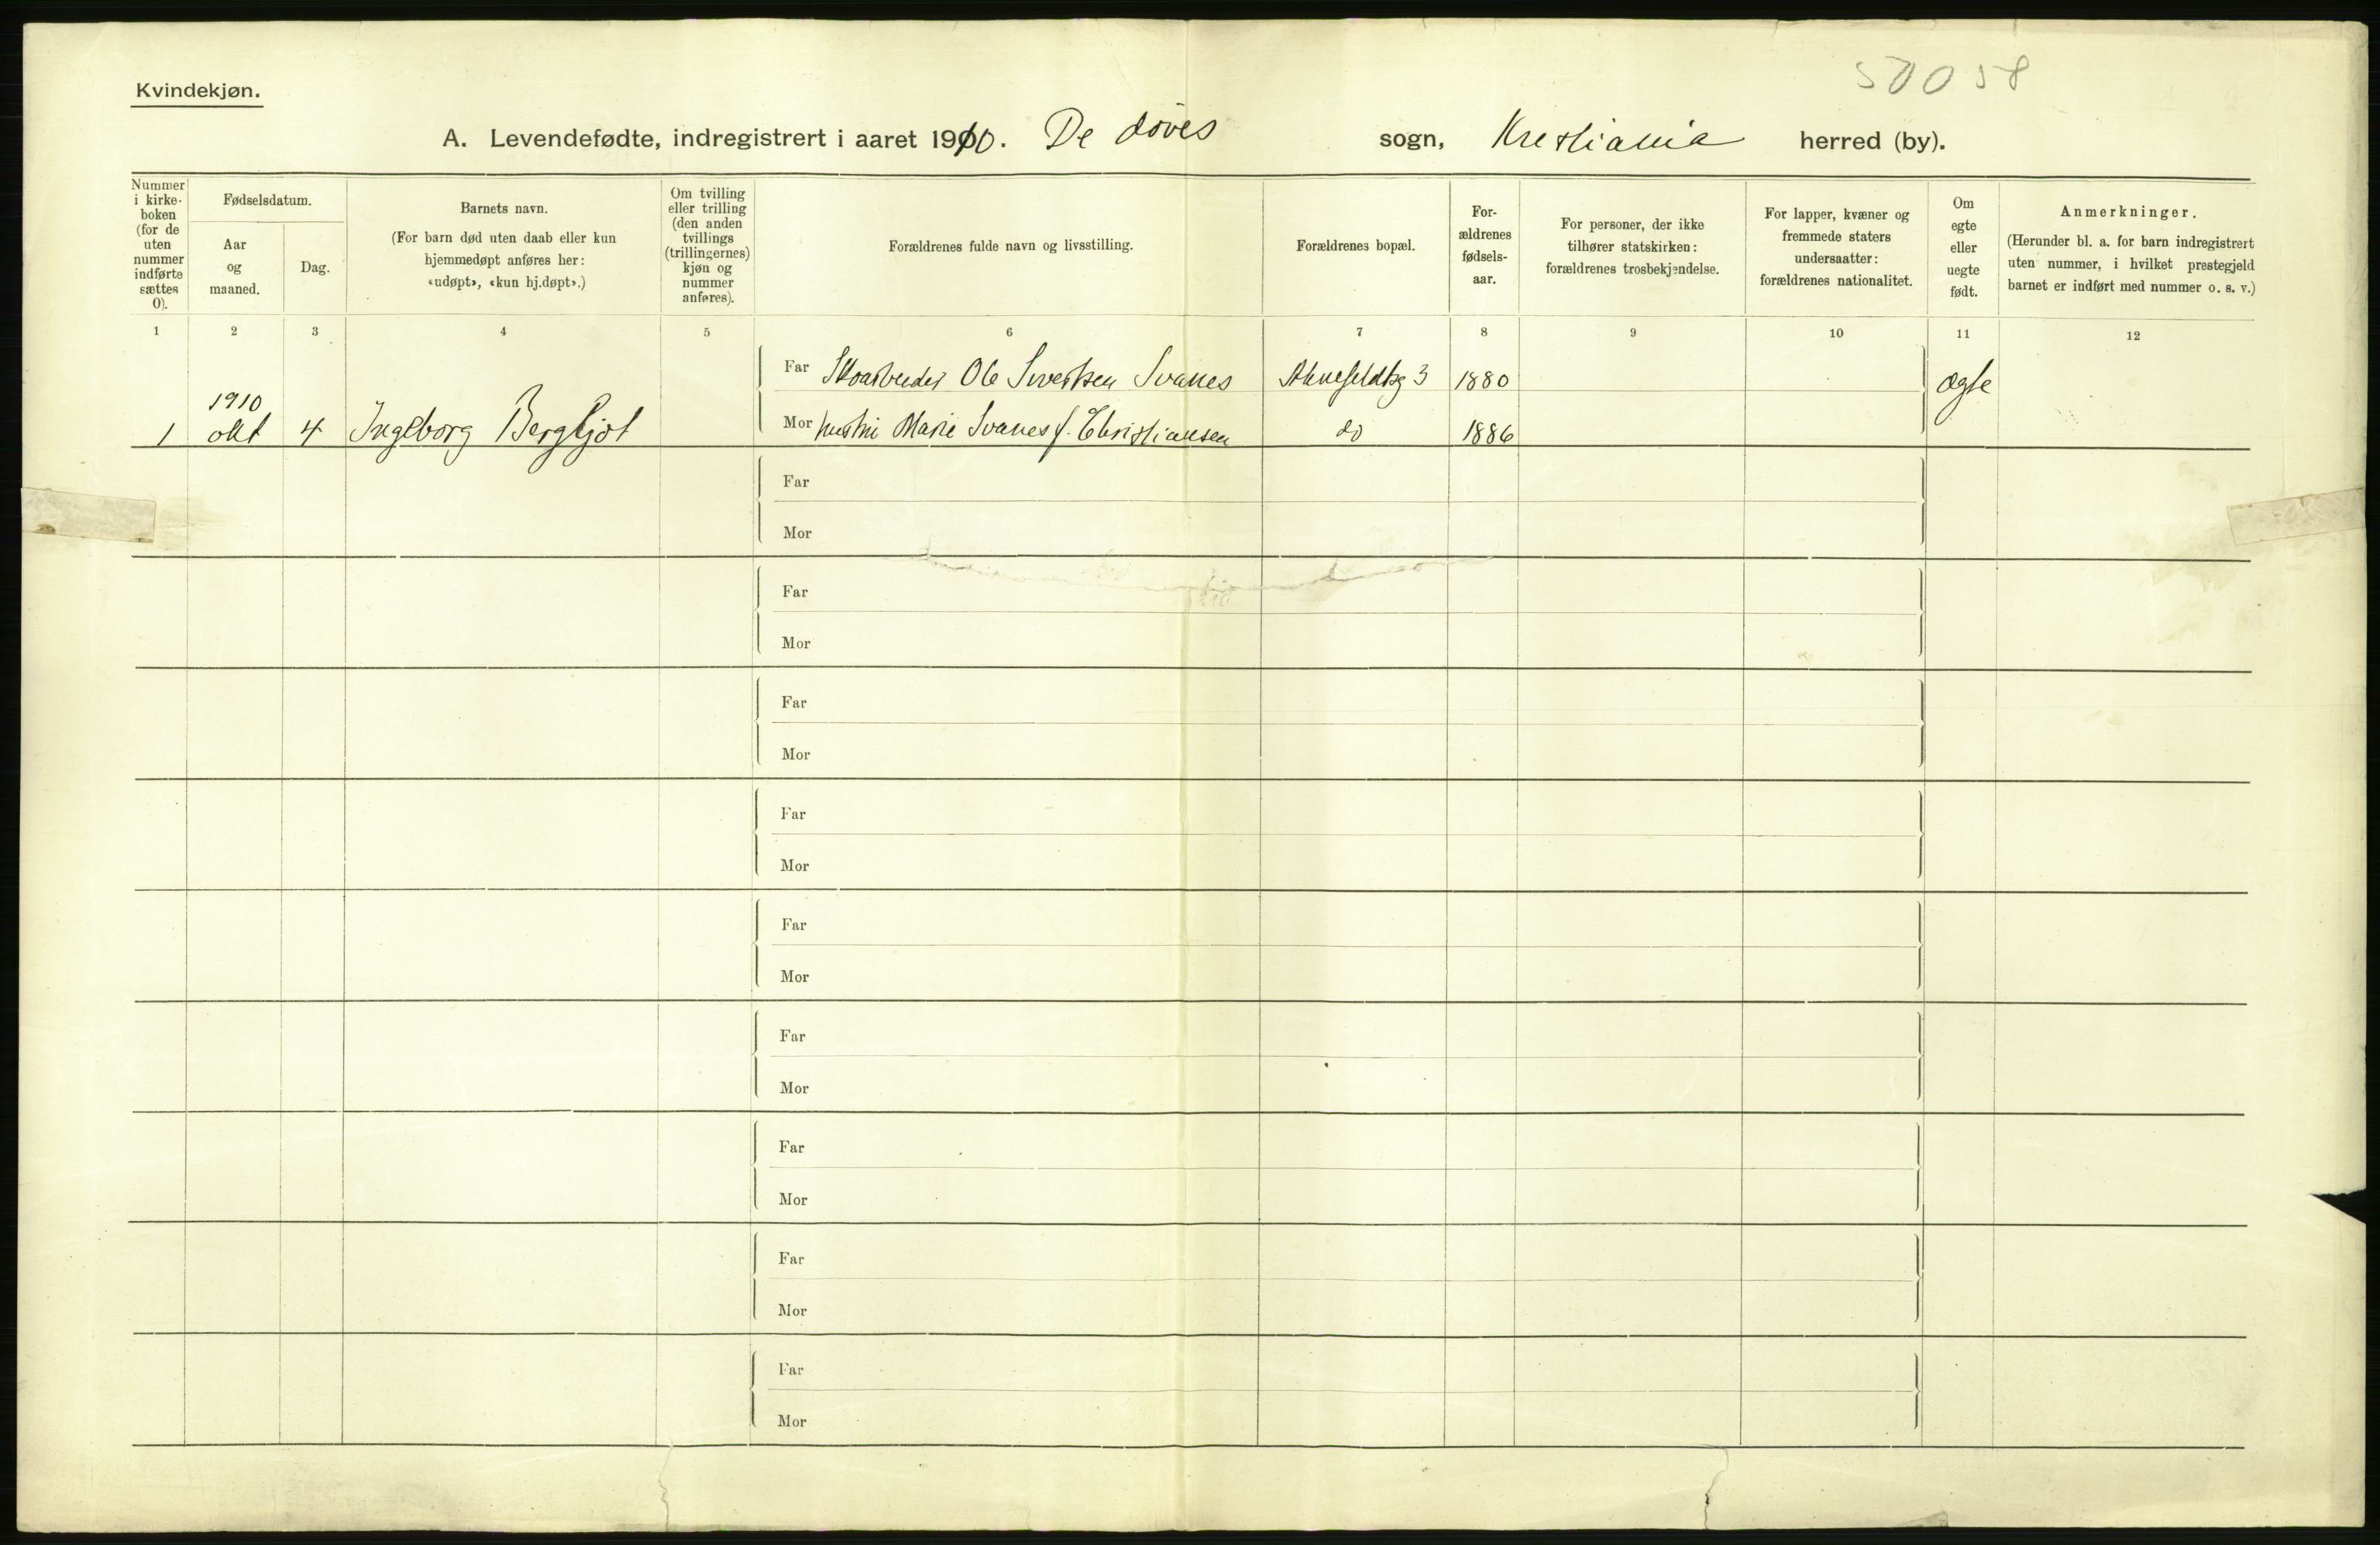 50058
Kvindekjøn.
A. Levendefødte, indregistrert i aaret 1910. De døves sogn, Kristiania herred (by).
Nummer i kirke-boken (for de uten nummer indførte sættes 0).
Fødselsdatum.
Aar og maaned.
Dag.
Barnets navn.
(For barn død uten daab eller kun hjemmedøpt anføres her: «udøpt», «kun hj.døpt».)
Om tvilling eller trilling (den anden tvillings (trillingernes) kjøn og nummer anføres).
Forældrenes fulde navn og livsstilling.
Forældrenes bopæl.
For-ældrenes fødsels-aar.
For personer, der ikke tilhører statskirken: forældrenes trosbekjendelse.
For lapper, kvæner og fremmede staters undersaatter: forældrenes nationalitet.
Om egte eller uegte født.
Anmerkninger.
(Herunder bl. a. for barn indregistrert uten nummer, i hvilket prestegjeld barnet er indført med nummer o. s. v.)
1 2 3 4 5 6 7 8 9 10 11 12
Far Skoarbeider Ole Sivertsen Svanes 3 1880 Ægte
1910
1 okt 4 Ingeborg Bergljot Mor hustru Marie Svanes f. Christiansen do 1886
Far
Mor
Far
Mor
Far
Mor
Far
Mor
Far
Mor
Far
Mor
Far
Mor
Far
Mor
Far
Mor